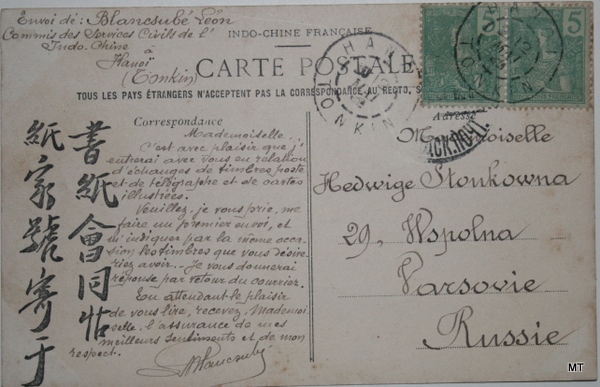 Envoi de: Blancsubé Léon
Commis des Services Civils de l'
Indo-Chine
à
Hanoï
(Tonkin)
INDO-CHINE FRANÇAISE
CARTE POSTALE
TOUS LES PAYS ÉTRANGERS N'ACCEPTENT PAS LA CORRESPONDANCE AU RECTO, S
5
5
HANOI
TONKIN
TONKIN
Correspondance
Mademoiselle.
C'est avec plaisir que j'
entrerai avec vous en relation
d'échanges de timbres poste
et de télégraphe et de cartes
illustrées.
Veuillez, je vous prie, me
faire un premier envoi, et
m'indiquer par la même occa-
sion les timbres que vous désire-
riez avoir. Je vous donnerai
réponse par retour du courrier.
En attendant le plaisir
de vous lire, recevez, Mademoi-
selle, l'assurance de mes
meilleurs sentiments et de mon
respect.
LBlancsubé
書紙會同怙
紙家號寄于
Adresse
Mademoiselle
Hedwige Stonkowna
29, Wspolna
Varsovie
Russie
MT